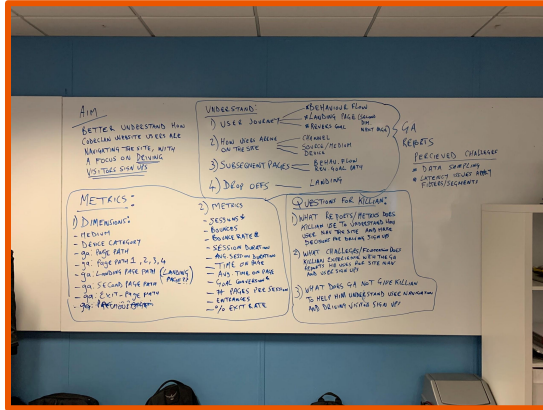 AIM
- BETTER UNDERSTAND HOW
CODECLAN WEBSITE USERS ARE
NAVIGATING THE SITE, WITH
A FOCUS ON DRIVING
VISITORS SIGN UPS
UNDERSTAND:
1) USER JOURNEY
* BEHAVIOUR FLOW
* LANDING PAGE (SECOND
DIM.
NEXT PAGE)
* REVERS GOAL
2) HOW USERS ARRIVE
ON THE SITE
CHANNEL
SOURCE/MEDIUM
DEVICE
3) SUBSEQUENT PAGES
BEHAV. FLOW
REV. GOAL PATH
4) DROP OFFS — LANDING
GA
REPORTS
PERCIEVED CHALLAGES
* DATA SAMPLING
* LATENCY ISSUES APPLY
FILTERS/SEGMENTS
METRICS:
1) DIMENSIONS:
- MEDIUM
- DEVICE CATEGORY
- ga: PAGE PATH
- ga: PAGE PATH 1, 2, 3, 4
- ga: LANDING PAGE PATH (LANDING
PAGE?)
- ga: SECOND PAGE PATH
- ga: EXIT-PAGE PATH
- ga:
2) METRICS
- SESSIONS *
- BOUNCES
- BOUNCE RATE *
- SESSION DURATION
- AVG. SESSION DURATION
- TIME ON PAGE
- AVG. TIME ON PAGE
- GOAL CONVERSION *
- # PAGES PER SESSION
- ENTRANCES
- % EXIT RATE
QUESTIONS FOR KILLIAN:
1) WHAT REPORTS/METRICS DOES
KILLIAN USE TO UNDERSTAND HOW
USER NAV THE SITE AND MAKE
DECISIONS RE DRIVING SIGN UP
2) WHAT CHALLEGES/ DOES
KILLIAN EXPERIENCE WITH THE GA
REPORTS HE USES FOR SITE NAV
AND USER SIGN UP?
3) WHAT DOES GA NOT GIVE KILLIAN
TO HELP HIM UNDERSTAND USER NAVIGATION
AND DRIVING VISITOR SIGN UP?